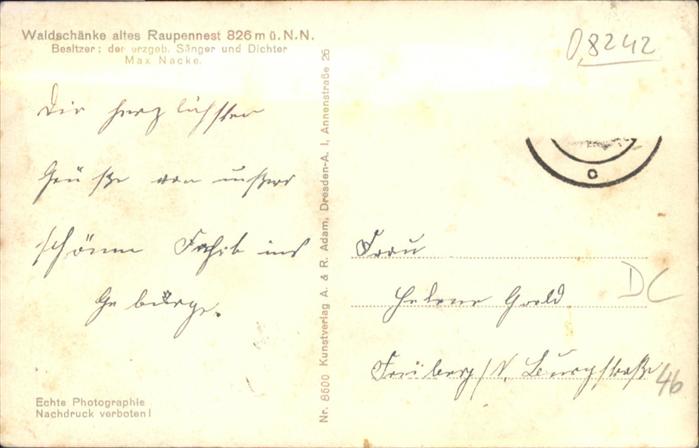 Waldschänke altes Raupennest 826 m ü. N. N.
Besitzer: der erzgeb. Sänger und Dichter
Max Nacke.
Die herzlichsten
Grüße von unserer
schönen Fahrt ins
Gebürge.
Echte Photographie
Nachdruck verboten!
Nr. 8600 Kunstverlag A. & R. Adam, Dresden-A. I, Annenstraße 26
0,8242
Frau
Helene
Freiberg/S, Burgstraße
46
DC